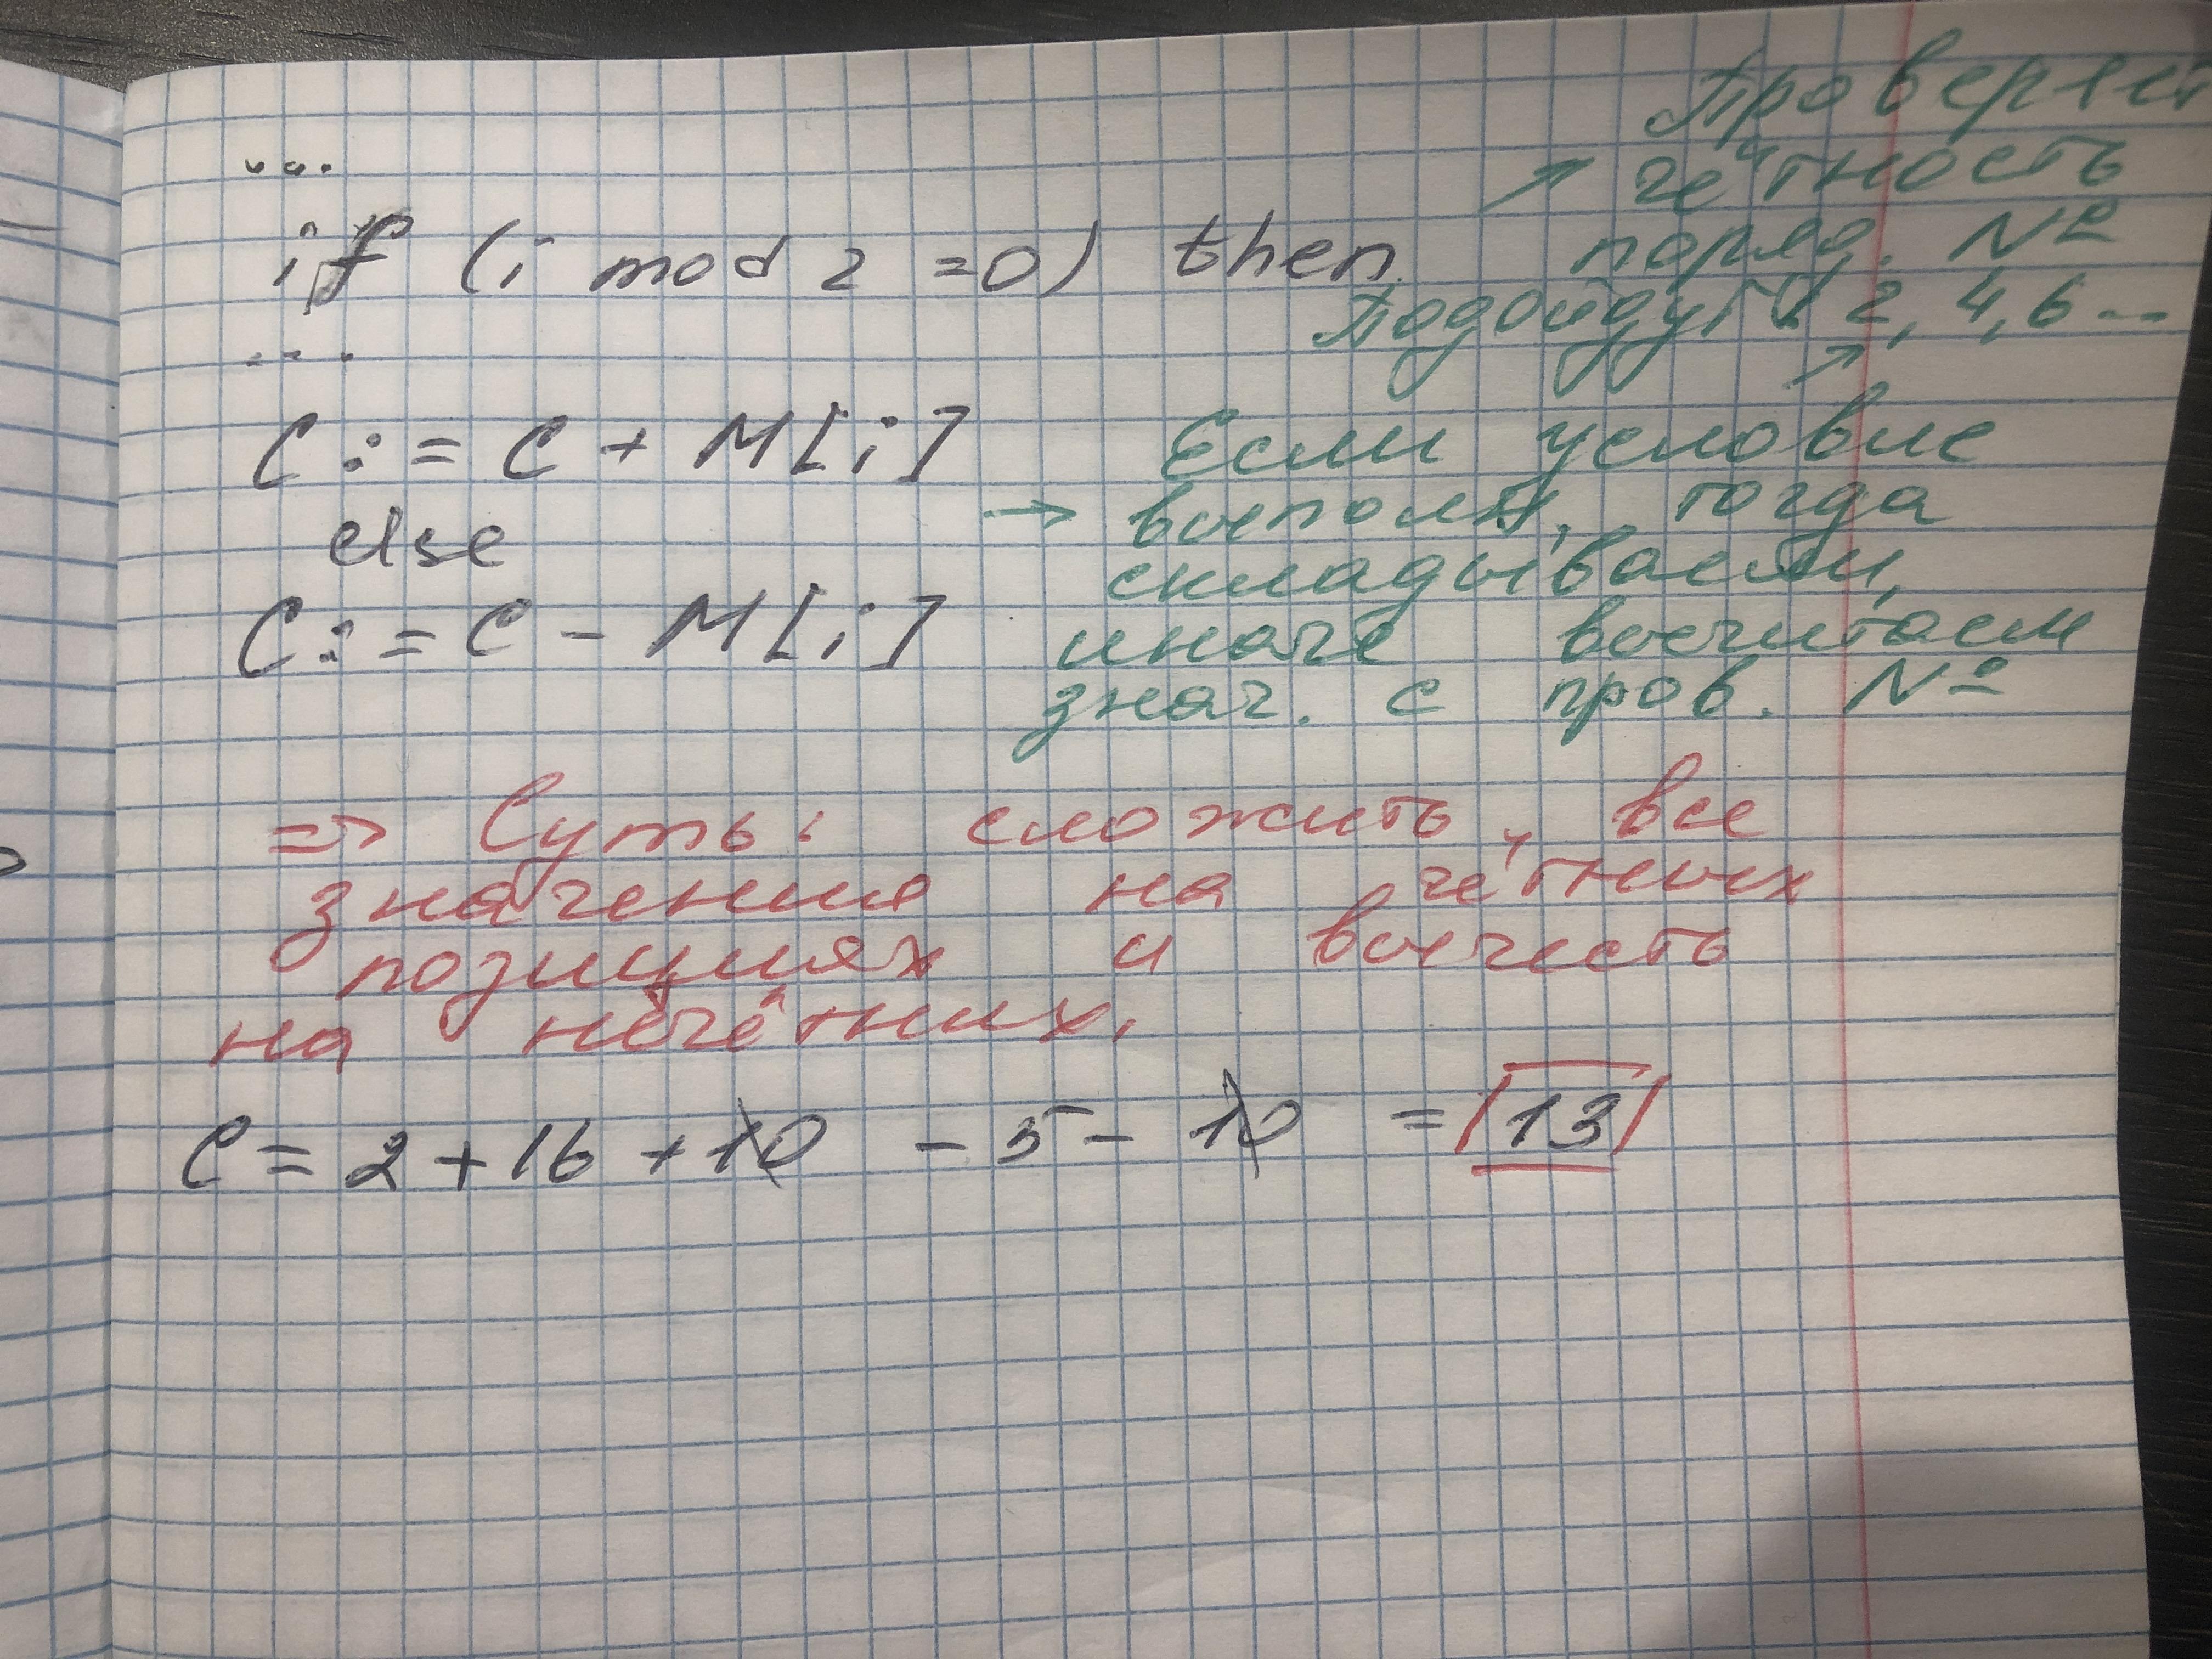 ...
if (i mod 2 = 0) then
...
C := C + M[i]
else
C := C - M[i]
↗ Проверяет
чётность
поряд. №
Подойдут: 2, 4, 6 ...
Если условие
→ выполн, тогда
складываем,
иначе вычитаем
знач. с пров. №
=> Суть: сложить все
значения на чётных
позициях и вычесть
на нечётных.
C = 2 + 16 + 10 - 5 - 10 = |13|